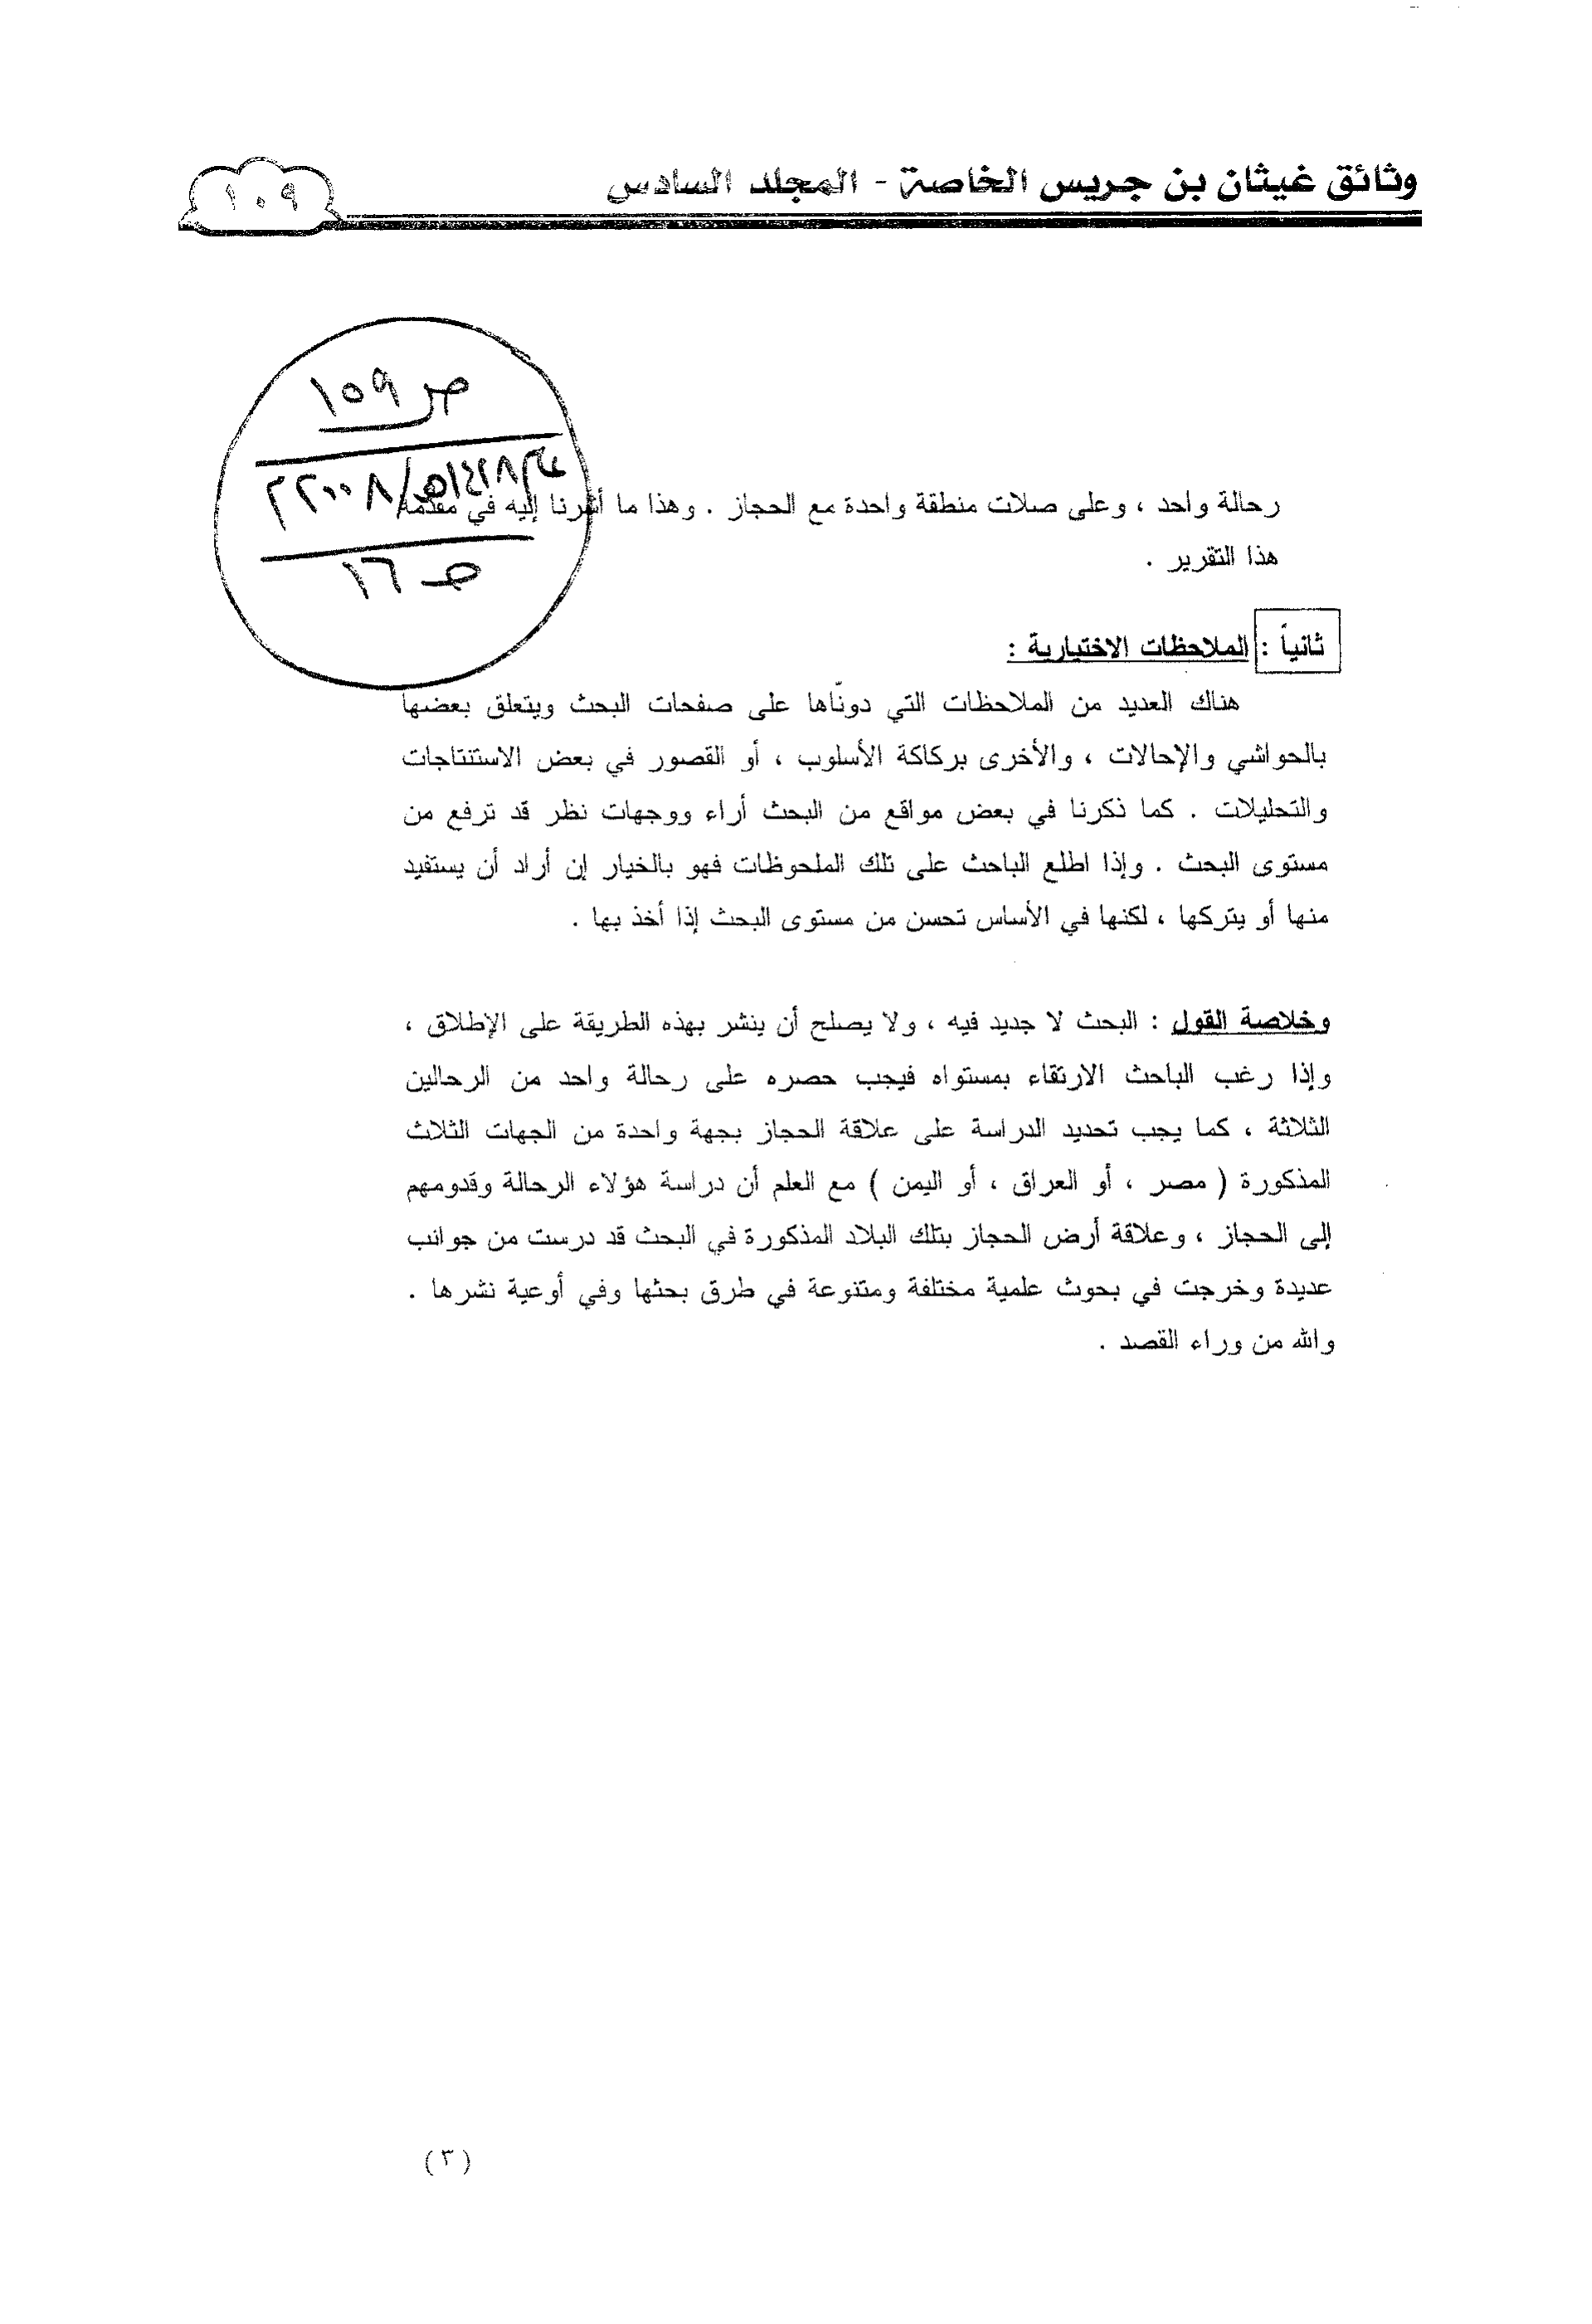 وثائق غيثان بن جريس الخاصة - المجلد السادس
١٠٩
ص ١٥٩
عام ١٤٢٨هـ/٢٠٠٨م
ص ١٦
رحالة واحد ، وعلى صلات منطقة واحدة مع الحجاز . وهذا ما أشرنا إليه في مقدمة
هذا التقرير .
ثانياً : الملاحظات الاختيارية :
هناك العديد من الملاحظات التي دونّاها على صفحات البحث ويتعلق بعضها
بالحواشي والإحالات ، والأخرى بركاكة الأسلوب ، أو القصور في بعض الاستنتاجات
والتحليلات . كما ذكرنا في بعض مواقع من البحث أراء ووجهات نظر قد ترفع من
مستوى البحث . وإذا اطلع الباحث على تلك الملحوظات فهو بالخيار إن أراد أن يستفيد
منها أو يتركها ، لكنها في الأساس تحسن من مستوى البحث إذا أخذ بها .
وخلاصة القول : البحث لا جديد فيه ، ولا يصلح أن ينشر بهذه الطريقة على الإطلاق ،
وإذا رغب الباحث الارتقاء بمستواه فيجب حصره على رحالة واحد من الرحالين
الثلاثة ، كما يجب تحديد الدراسة على علاقة الحجاز بجهة واحدة من الجهات الثلاث
المذكورة ( مصر ، أو العراق ، أو اليمن ) مع العلم أن دراسة هؤلاء الرحالة وقدومهم
إلى الحجاز ، وعلاقة أرض الحجاز بتلك البلاد المذكورة في البحث قد درست من جوانب
عديدة وخرجت في بحوث علمية مختلفة ومتنوعة في طرق بحثها وفي أوعية نشرها .
والله من وراء القصد .
( ٣ )